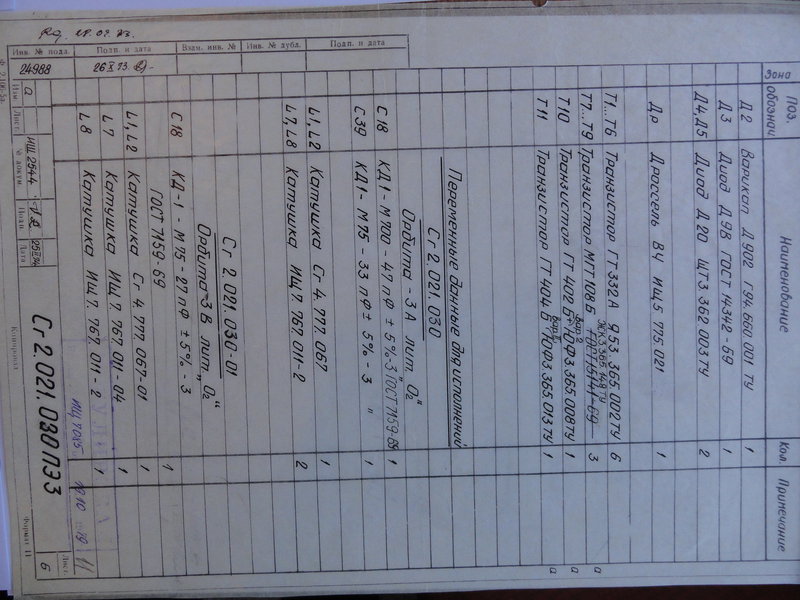 Зона
Поз. обознач.
Наименование
Кол.
Примечание
Д2 Варикап Д902 ГЭ4.660.001 ТУ 1
Д3 Диод Д9В ГОСТ 14342-69 1
Д4, Д5 Диод Д20 ЩТ3.362.003 ТУ 2
Др Дроссель ВЧ ИЩ5.775.021 1
Т1...Т6 Транзистор ГТ332А 3.365.002 ТУ 6
3.365.148 ТУ
Т7...Т9 Транзистор МГТ108Б ГОСТ 15141-69 3 а
Вар. 2
Т10 Транзистор ГТ402Б ЮФ3.365.008 ТУ 1 а
Т11 Транзистор ГТ404Б ЮФ3.365.013 ТУ 1 а
Переменные данные для исполнений
Сг 2.021.030
Орбита-3А лит. „О₂“
С18 КД1-М700-4,7 пФ ±5%-3 ГОСТ 7159-69 1
С39 КД1-М75-33 пФ ±5%-3 " 1
L1, L2 Катушка Сг 4.777.067 1
L7, L8 Катушка ИЩ7.767.011-2 2
Сг 2.021.030-01
Орбита-3В лит. „О₂“
С18 КД-1-М75-27 пФ ±5%-3 1
ГОСТ 7159-69
L1, L2 Катушка Сг 4.777.067-01 1
L7 Катушка ИЩ7.767.011-04 1
L8 Катушка ИЩ7.767.011-2 1
Инв. № подл.
Подп. и дата
Взам. инв. №
Инв. № дубл.
Подп. и дата
24988
26 X 73
а ИЩ2544
Изм Лист № докум. Подп Дата
Сг 2.021.030 ПЭ3
Лист
6
Копировал
Формат 11